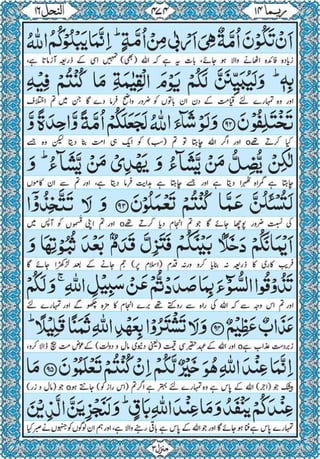 ربما ١٤
٤٧٤
النحل ١٦
اَنْ تَكُوْنَ اُمَّةٌ هِیَ اَرْبٰى مِنْ اُمَّةٍ ؕ اِنَّمَا یَبْلُوْكُمُ اللّٰهُ
زیادہ فائدہ اٹھانے والا ہو جائے، بات یہ ہے کہ اللہ (بھی) تمہیں اسی کے ذریعہ آزماتا ہے،
بِهٖ ؕ وَ لَیُبَیِّنَنَّ لَكُمْ یَوْمَ الْقِیٰمَةِ مَا كُنْتُمْ فِیْهِ
اور وہ تمہارے لئے قیامت کے دن ان باتوں کو ضرور واضح فرما دے گا جن میں تم اختلاف
تَخْتَلِفُوْنَ ﴿٩٢﴾ وَ لَوْ شَآءَ اللّٰهُ لَجَعَلَكُمْ اُمَّةً وَّاحِدَةً وَّ
کیا کرتے تھے o اور اگر اللہ چاہتا تو تم (سب) کو ایک ہی امت بنا دیتا لیکن وہ جسے
لٰكِنْ یُّضِلُّ مَنْ یَّشَآءُ وَ یَهْدِیْ مَنْ یَّشَآءُ ؕ وَ
چاہتا ہے گمراہ ٹھہرا دیتا ہے اور جسے چاہتا ہے ہدایت فرما دیتا ہے، اور تم سے ان کاموں
لَتُسْـَٔلُنَّ عَمَّا كُنْتُمْ تَعْمَلُوْنَ ﴿٩٣﴾ وَ لَا تَتَّخِذُوْۤا
کی نسبت ضرور پوچھا جائے گا جو تم انجام دیا کرتے تھے o اور تم اپنی قسموں کو آپس میں
اَیْمَانَكُمْ دَخَلًۢا بَیْنَكُمْ فَتَزِلَّ قَدَمٌۢ بَعْدَ ثُبُوْتِهَا وَ
فریب کاری کا ذریعہ نہ بنایا کرو ورنہ قدم (اسلام پر) جم جانے کے بعد لڑکھڑا جائے گا
تَذُوْقُوا السُّوْٓءَ بِمَا صَدَدْتُّمْ عَنْ سَبِیْلِ اللّٰهِ ۚ وَ لَكُمْ
اور تم اس وجہ سے کہ اللہ کی راہ سے روکتے تھے برے انجام کا مزہ چکھو گے اور تمہارے لئے
عَذَابٌ عَظِیْمٌ ﴿٩٤﴾ وَ لَا تَشْتَرُوْا بِعَهْدِ اللّٰهِ ثَمَنًا قَلِیْلًا ؕ
زبردست عذاب ہے o اور اللہ کے عہد حقیر سی قیمت (یعنی دنیوی مال و دولت) کے عوض مت بیچ ڈالا کرو،
اِنَّمَا عِنْدَ اللّٰهِ هُوَ خَیْرٌ لَّكُمْ اِنْ كُنْتُمْ تَعْلَمُوْنَ ﴿٩٥﴾ مَا
بیشک جو (اجر) اللہ کے پاس ہے وہ تمہارے لئے بہتر ہے اگر تم (اس راز کو) جانتے ہو o (جو مال و زر)
عِنْدَكُمْ یَنْفَدُ وَ مَا عِنْدَ اللّٰهِ بَاقٍ ؕ وَ لَنَجْزِیَنَّ الَّذِیْنَ
تمہارے پاس ہے فنا ہو جائے گا اور جو اللہ کے پاس ہے باقی رہنے والا ہے، اور ہم ان لوگوں کو جنہوں نے صبر کیا
منزل ٣